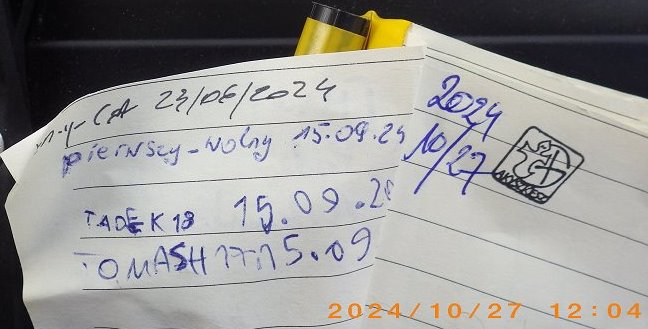 23/06/2024
pierwszy-wolny 15.09.24
TADEK 18 15.09.2
TOMASH 17:15.09
2024
10/27
2024/10/27 12:04